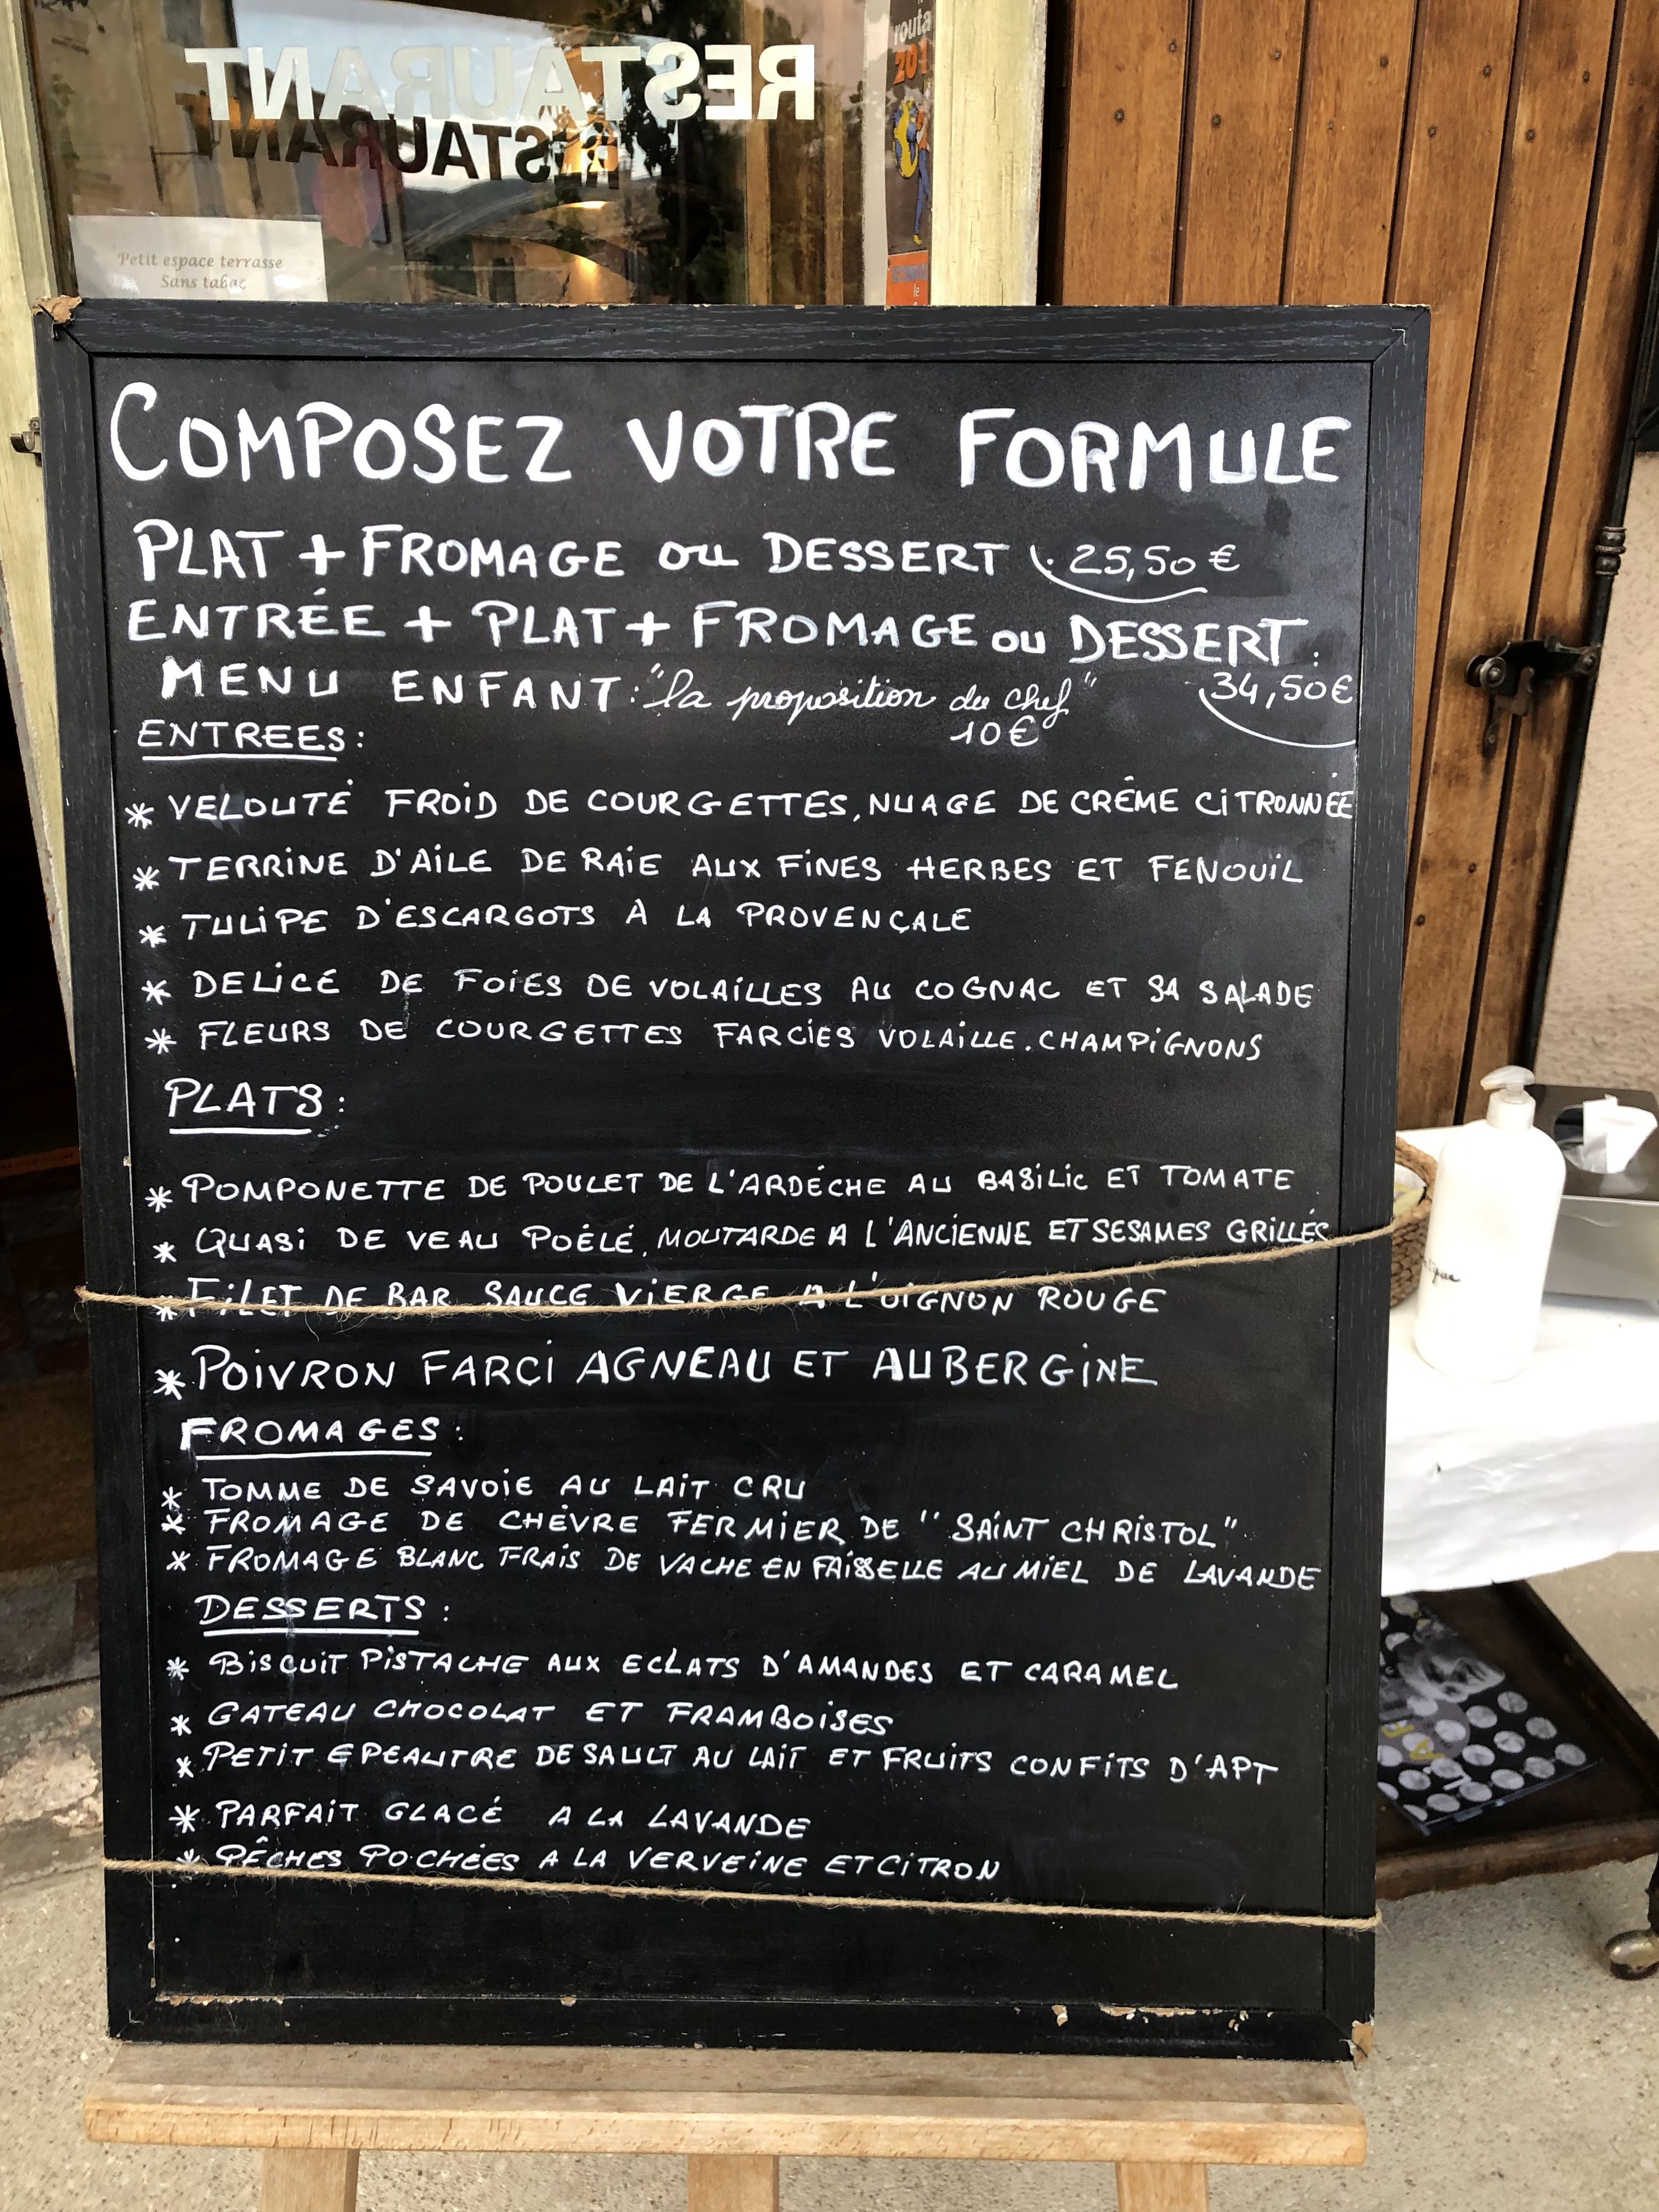 RESTAURANT
RESTAURANT
routa
201
Petit espace terrasse
Sans tabac
COMPOSEZ VOTRE FORMULE
PLAT + FROMAGE OU DESSERT : 25,50 €
ENTRÉE + PLAT + FROMAGE OU DESSERT :
34,50€
MENU ENFANT : "la proposition du chef"
10€
ENTREES :
* VELOUTÉ FROID DE COURGETTES, NUAGE DE CRÊME CITRONNÉE
* TERRINE D'AILE DE RAIE AUX FINES HERBES ET FENOUIL
* TULIPE D'ESCARGOTS À LA PROVENÇALE
* DELICE DE FOIES DE VOLAILLES AU COGNAC ET SA SALADE
* FLEURS DE COURGETTES FARCIES VOLAILLE.CHAMPIGNONS
PLATS :
* POMPONETTE DE POULET DE L'ARDÉCHE AU BASILIC ET TOMATE
* QUASI DE VEAU POÊLÉ, MOUTARDE A L'ANCIENNE ET SESAMES GRILLÉS
* FILET DE BAR SAUCE VIERGE A L'OIGNON ROUGE
* POIVRON FARCI AGNEAU ET AUBERGINE
FROMAGES :
* TOMME DE SAVOIE AU LAIT CRU
* FROMAGE DE CHÈVRE FERMIER DE "SAINT CHRISTOL"
* FROMAGE BLANC FRAIS DE VACHE EN FAISSELLE AU MIEL DE LAVANDE
DESSERTS :
* BISCUIT PISTACHE AUX ECLATS D'AMANDES ET CARAMEL
* GATEAU CHOCOLAT ET FRAMBOISES
* PETIT EPEAUTRE DE SAULT AU LAIT ET FRUITS CONFITS D'APT
* PARFAIT GLACÉ A LA LAVANDE
* PÊCHES POCHÉES A LA VERVEINE ET CITRON